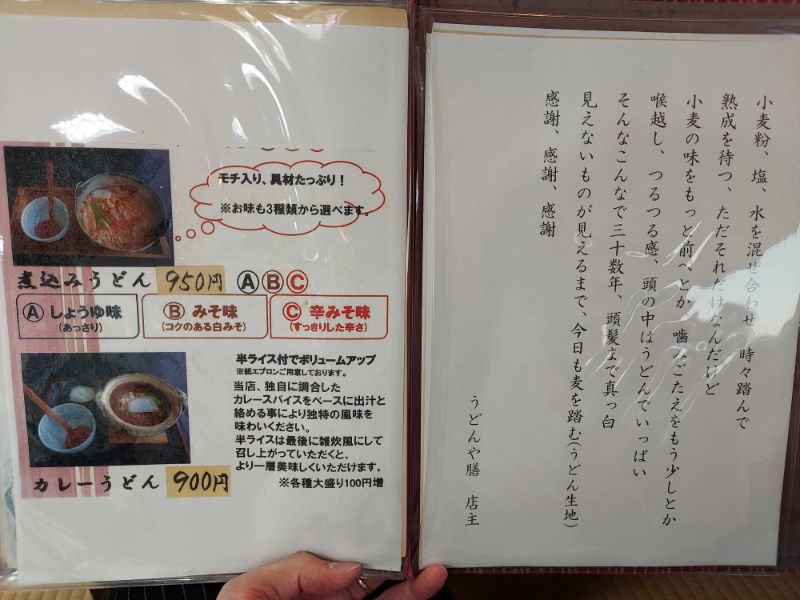 モチ入り、具材たっぷり！
※お味も3種類から選べます。
煮込みうどん 950円 ⒶⒷⒸ
Ⓐ しょうゆ味
(あっさり)
Ⓑ みそ味
(コクのある白みそ)
Ⓒ 辛みそ味
(すっきりした辛さ)
半ライス付でボリュームアップ
※紙エプロンご用意しております。
当店、独自に調合した
カレースパイスをベースに出汁と
絡める事により独特の風味を
味わいください。
半ライスは最後に雑炊風にして
召し上がっていただくと、
より一層美味しくいただけます。
カレーうどん 900円
※各種大盛り100円増
小麦粉、塩、水を混ぜ合わせ 時々踏んで
熟成を待つ、ただそれだけなんだけど
小麦の味をもっと前へとか 噛みごたえをもう少しとか
喉越し、つるつる感、頭の中はうどんでいっぱい
そんなこんなで三十数年、頭髪まで真っ白
見えないものが見えるまで、今日も麦を踏む(うどん生地)
感謝、感謝、感謝
うどんや膳 店主